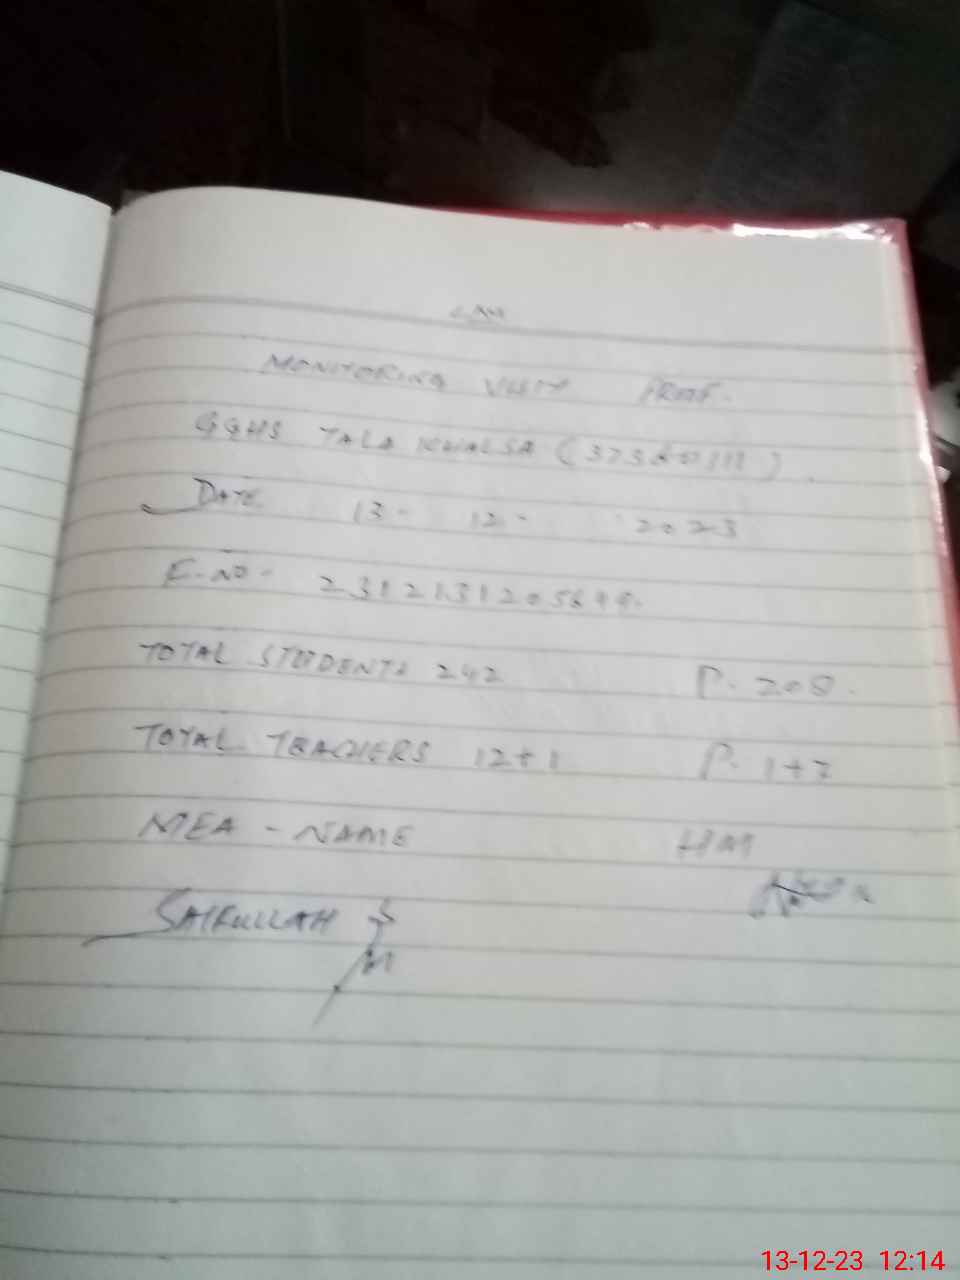 MONITORING VISIT PROF.
GGHS TALA KHALSA
DATE 13-12-2023
F-NO-
TOTAL STUDENTS 242 P. 208.
TOTAL TEACHERS 12+1 P. 1+7
MEA - NAME HM
SAIFULLAH
13-12-23 12:14